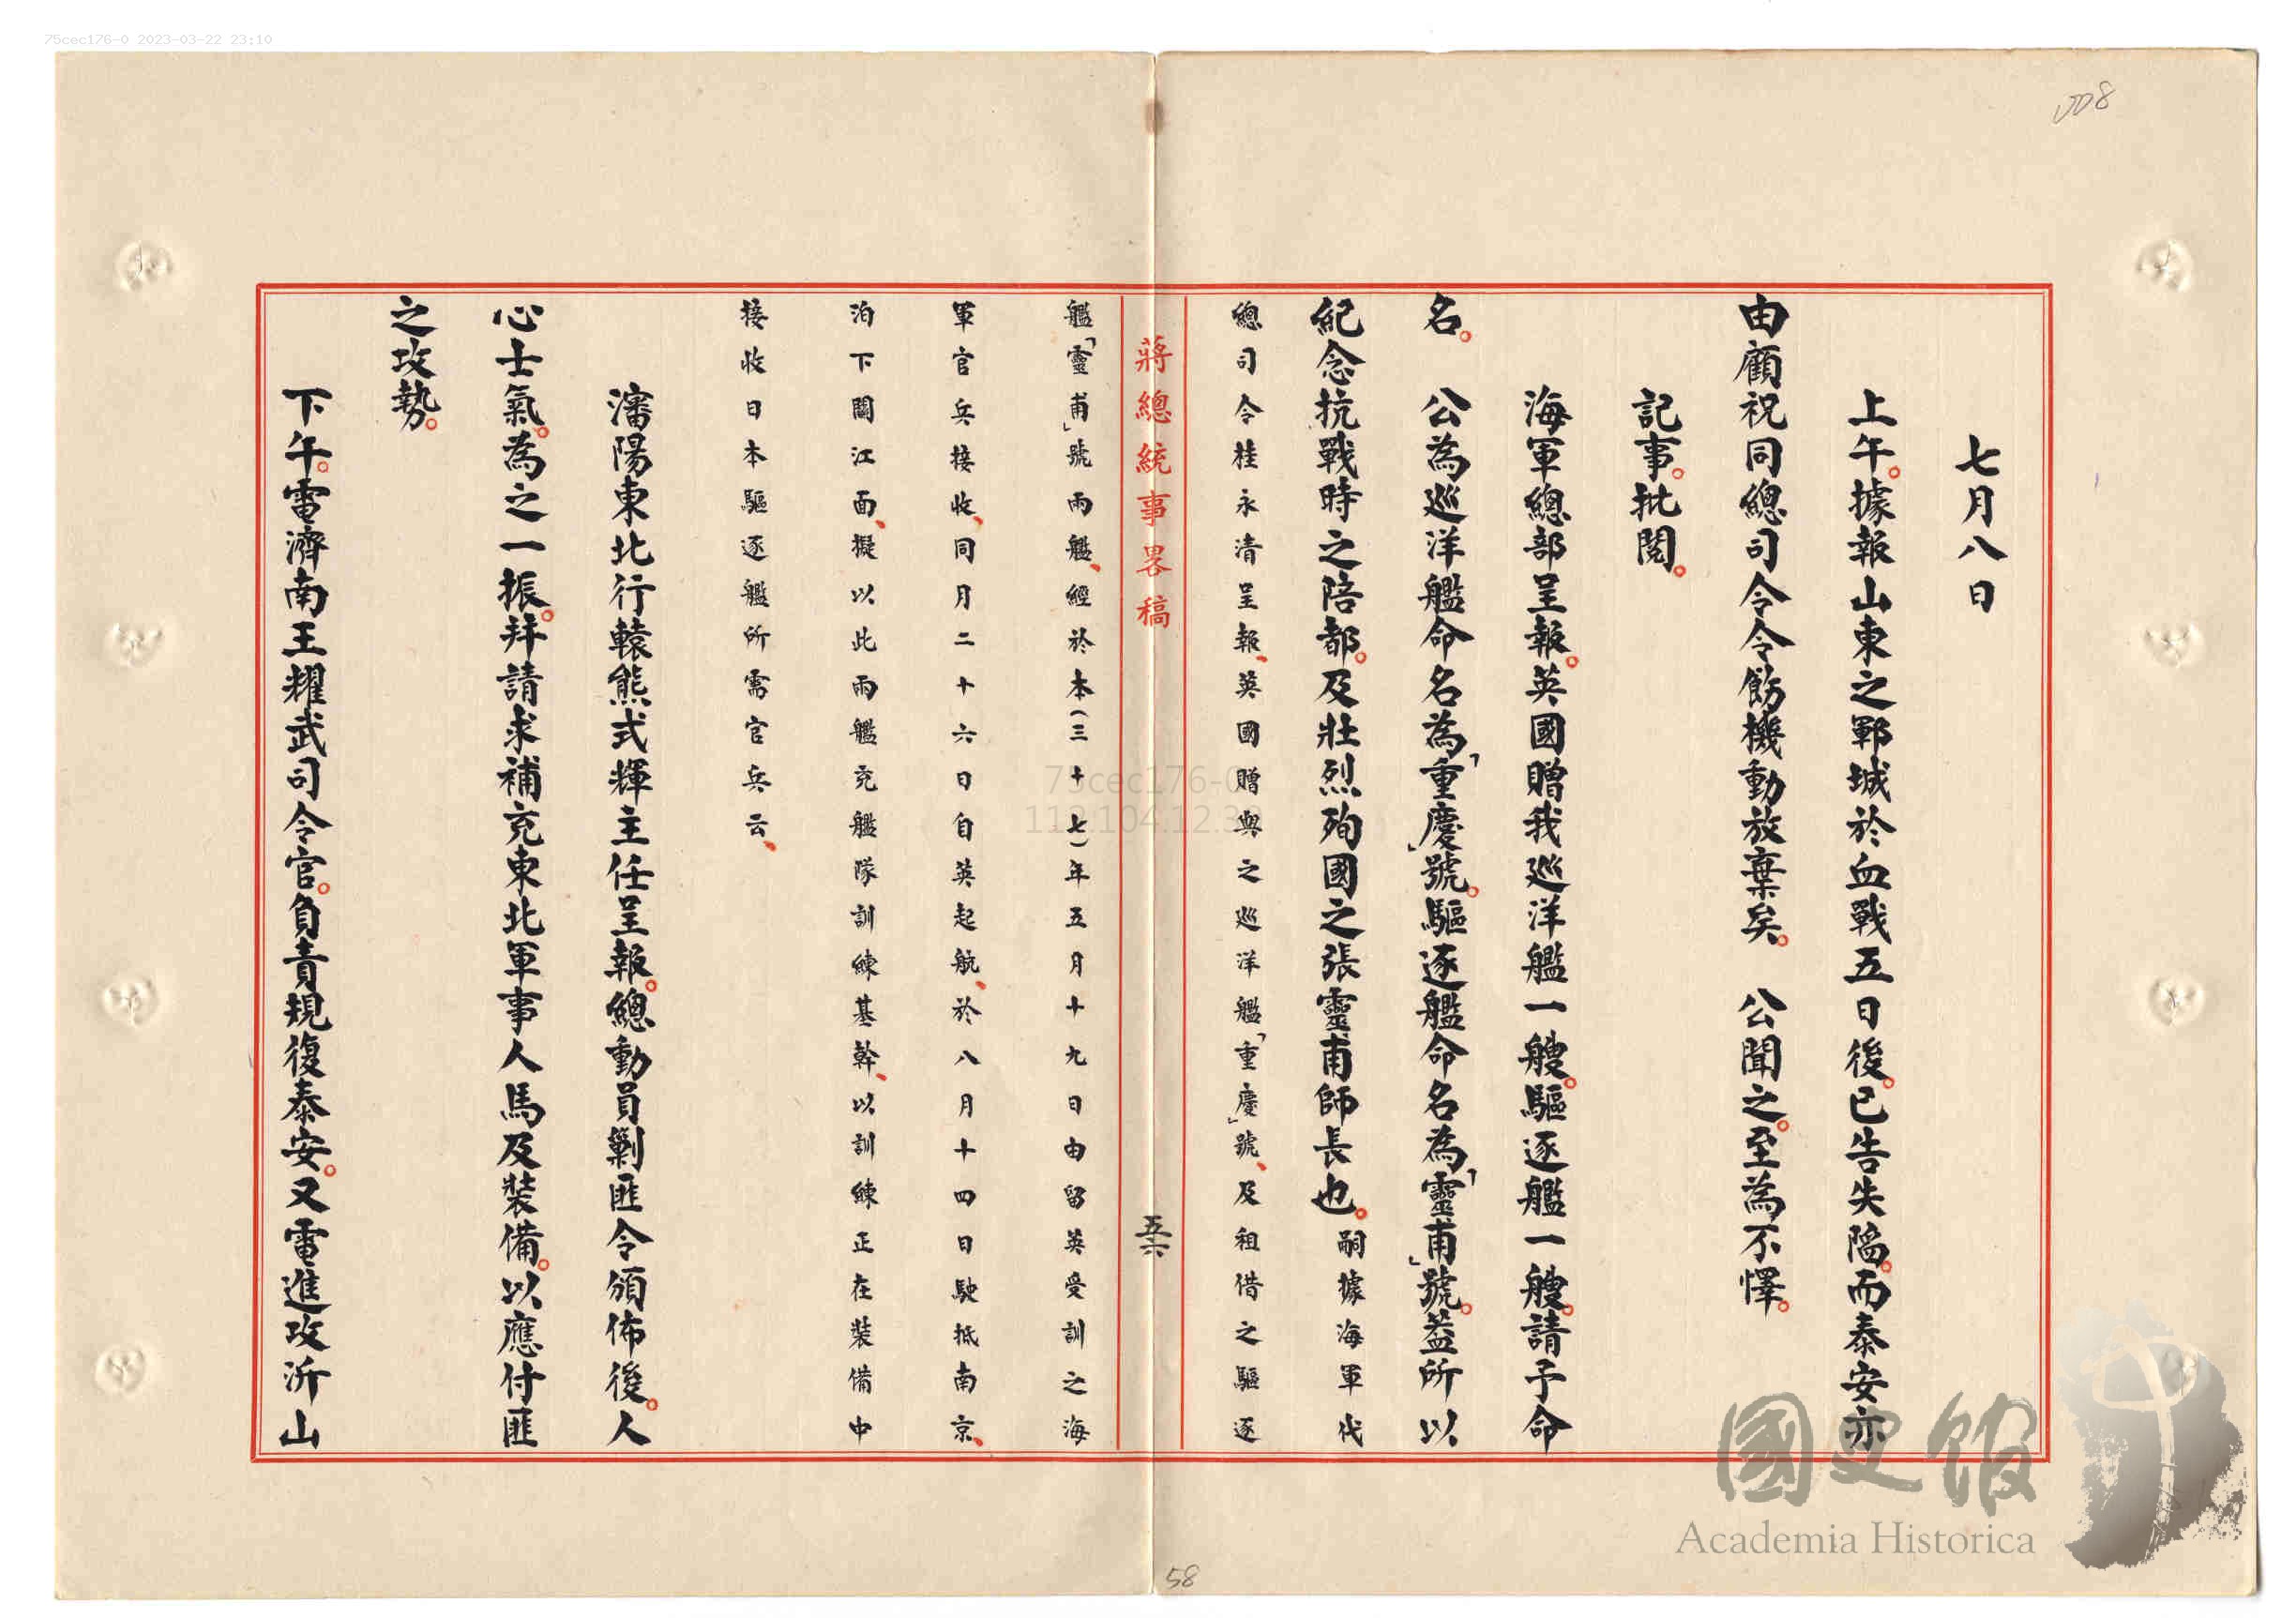 75cec176-0 2023-03-22 23:10
008
七月八日
上午。據報山東之鄆城於血戰五日後。已告失陷。而泰安亦
由顧祝同總司令令飭機動放棄矣。　公聞之。至為不懌。
記事。批閱。
海軍總部呈報。英國贈我巡洋艦一艘。驅逐艦一艘。請予命
名。　公為巡洋艦命名為「重慶」號。驅逐艦命名為「靈甫」號。蓋所以
紀念抗戰時之陪都。及壯烈殉國之張靈甫師長也。嗣據海軍代
總司令桂永清呈報、英國贈與之巡洋艦「重慶」號、及租借之驅逐
蔣總統事畧稿
五六
艦「靈甫」號兩艦、經於本(三十七)年五月十九日由留英受訓之海
軍官兵接收、同月二十六日自英起航、於八月十四日駛抵南京、
泊下關江面、擬以此兩艦充艦隊訓練基幹、以訓練正在裝備中
接收日本驅逐艦所需官兵云、
瀋陽東北行轅熊式輝主任呈報。總動員剿匪令頒佈後。人
心士氣。為之一振。并請求補充東北軍事人馬及裝備。以應付匪
之攻勢。
下午。電濟南王耀武司令官。負責規復泰安。又電進攻沂山
75cec176-0
112.104.12.30
國史館
Academia Historica
58